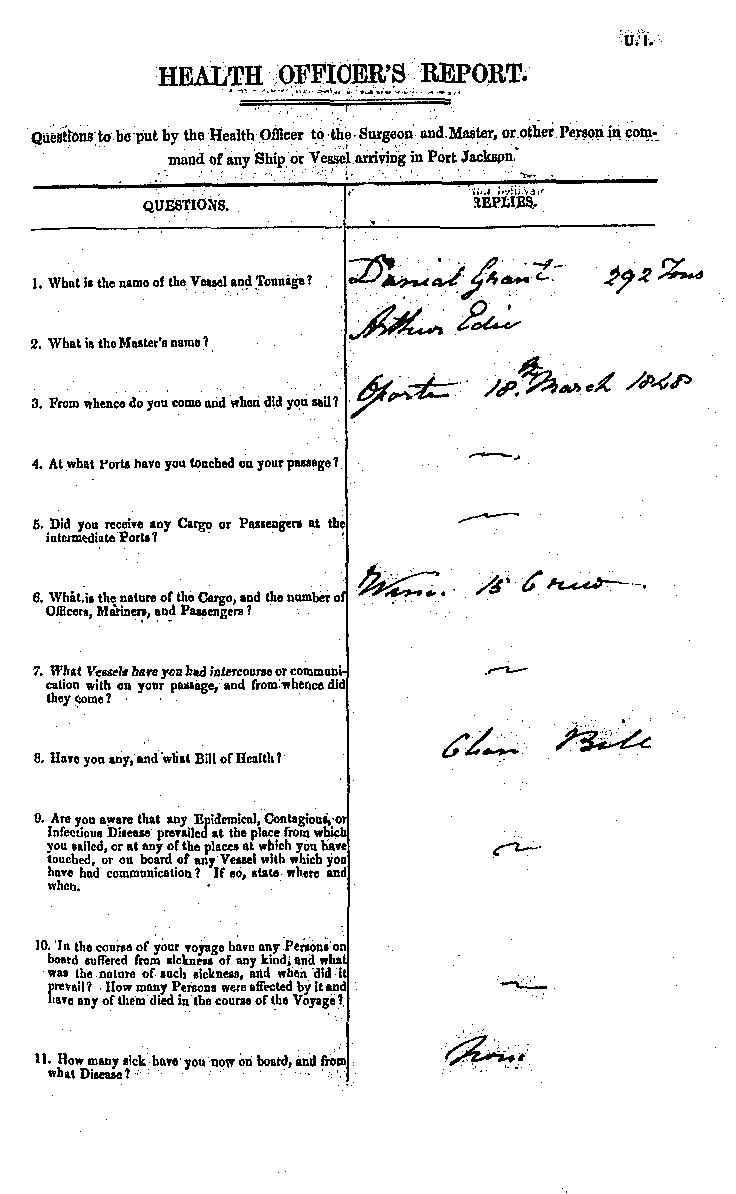 U. 1.
HEALTH OFFICER'S REPORT.
Questions to be put by the Health Officer to the Surgeon and Master, or other Person in com-
mand of any Ship or Vessel arriving in Port Jackson.
QUESTIONS. REPLIES.
1. What is the name of the Vessel and Tonnage? Danial Grant 292 Tons
2. What is the Master's name? Arthur Edie
3. From whence do you come and when did you sail? Oporto 18th March 1848
4. At what Ports have you touched on your passage? —
5. Did you receive any Cargo or Passengers at the —
intermediate Ports?
6. What is the nature of the Cargo, and the number of Wine. 15 Crew
Officers, Mariners, and Passengers?
7. What Vessels have you had intercourse or communi- —
cation with on your passage, and from whence did
they come?
8. Have you any, and what Bill of Health? Clean Bill
9. Are you aware that any Epidemical, Contagious, or
Infectious Disease prevailed at the place from which
you sailed, or at any of the places at which you have
touched, or on board of any Vessel with which you —
have had communication? If so, state where and
when.
10. In the course of your voyage have any Persons on
board suffered from sickness of any kind; and what
was the nature of such sickness, and when did it
prevail? How many Persons were affected by it and —
have any of them died in the course of the Voyage?
11. How many sick have you now on board, and from None
what Disease?